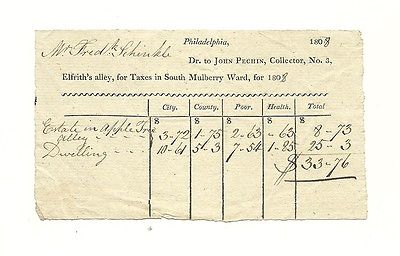 Philadelphia, 1808
Mr. Fredk. Schinkle
Dr. to JOHN PECHIN, Collector, No. 3,
Elfrith's alley, for Taxes in South Mulberry Ward, for 1808
City. County. Poor. Health. Total
$ $ $ $ $
Estate in Apple Tree
alley - - 3-72 1-75 2-63 -63 8-73
Dwelling - - - 10-61 5-3 7-54 1-85 25-3
$33-76